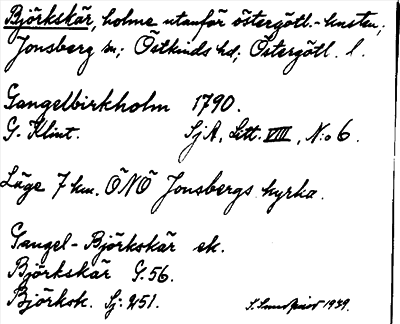 Björkskär, holme utanför östergötl.-kusten;
Jonsberg sn; Östkinds hd; Östergötl. l.
Gangelbirkholm 1790.
G. Klint. SjA, Litt. VIII, N:o 6.
Läge 7 km. ÖNÖ Jonsbergs kyrka.
Gangel-Björkskär ek.
Björkskär G. 56.
Björksk. Sj: 251.
1939.